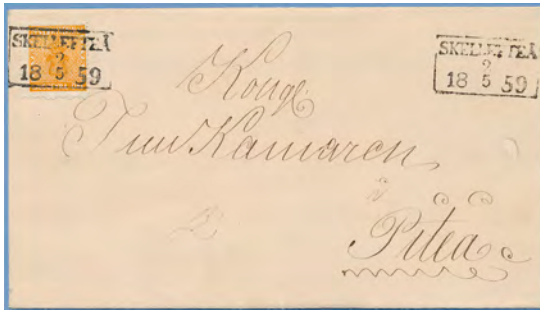 SKELLEFTEÅ
2
18 5 59
SKELLEFTEÅ
2
18 5 59
Kongl.
Tull Kamaren
i
Piteå